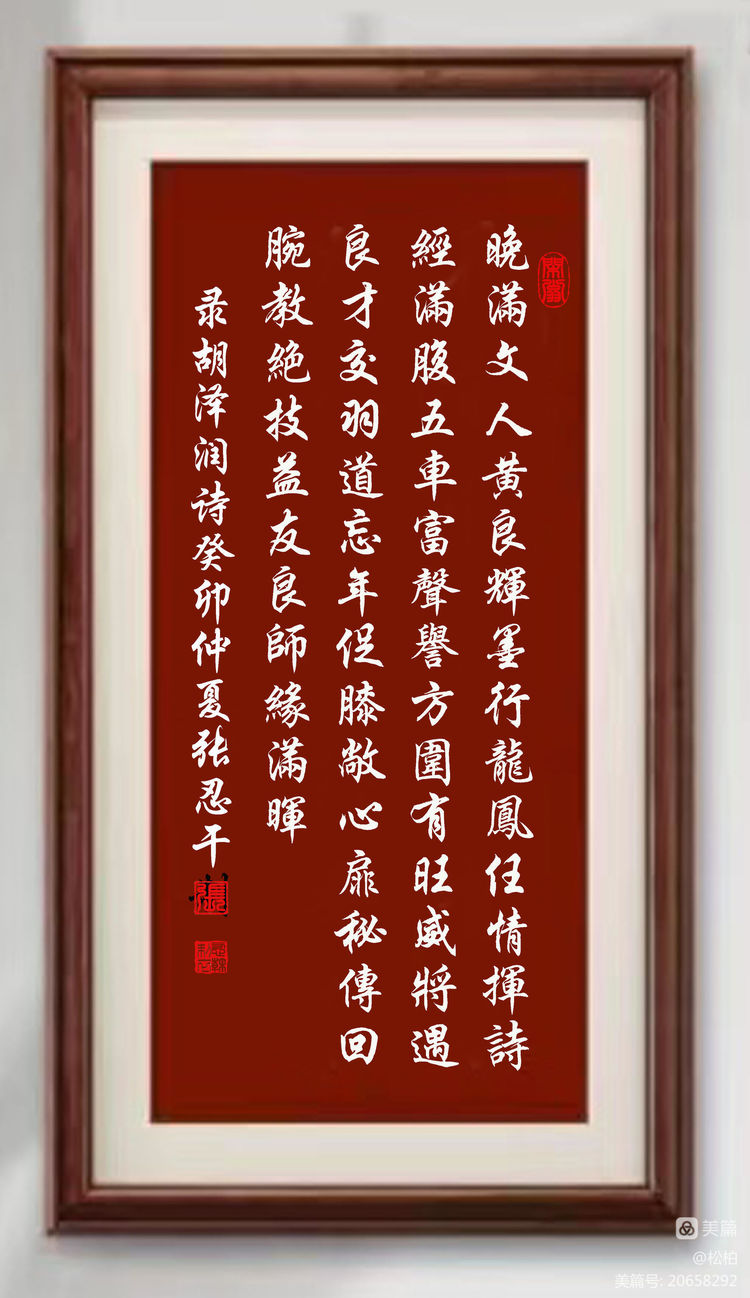 晚滿文人黄良輝墨行龍鳳任情揮詩
經滿腹五車富聲譽方圍有旺威將遇
良才交羽道忘年促膝敞心扉秘傳回
腕教絶技益友良師緣滿暉
录胡泽润诗癸卯仲夏张忍干
美篇
@松柏
美篇号: 20658292